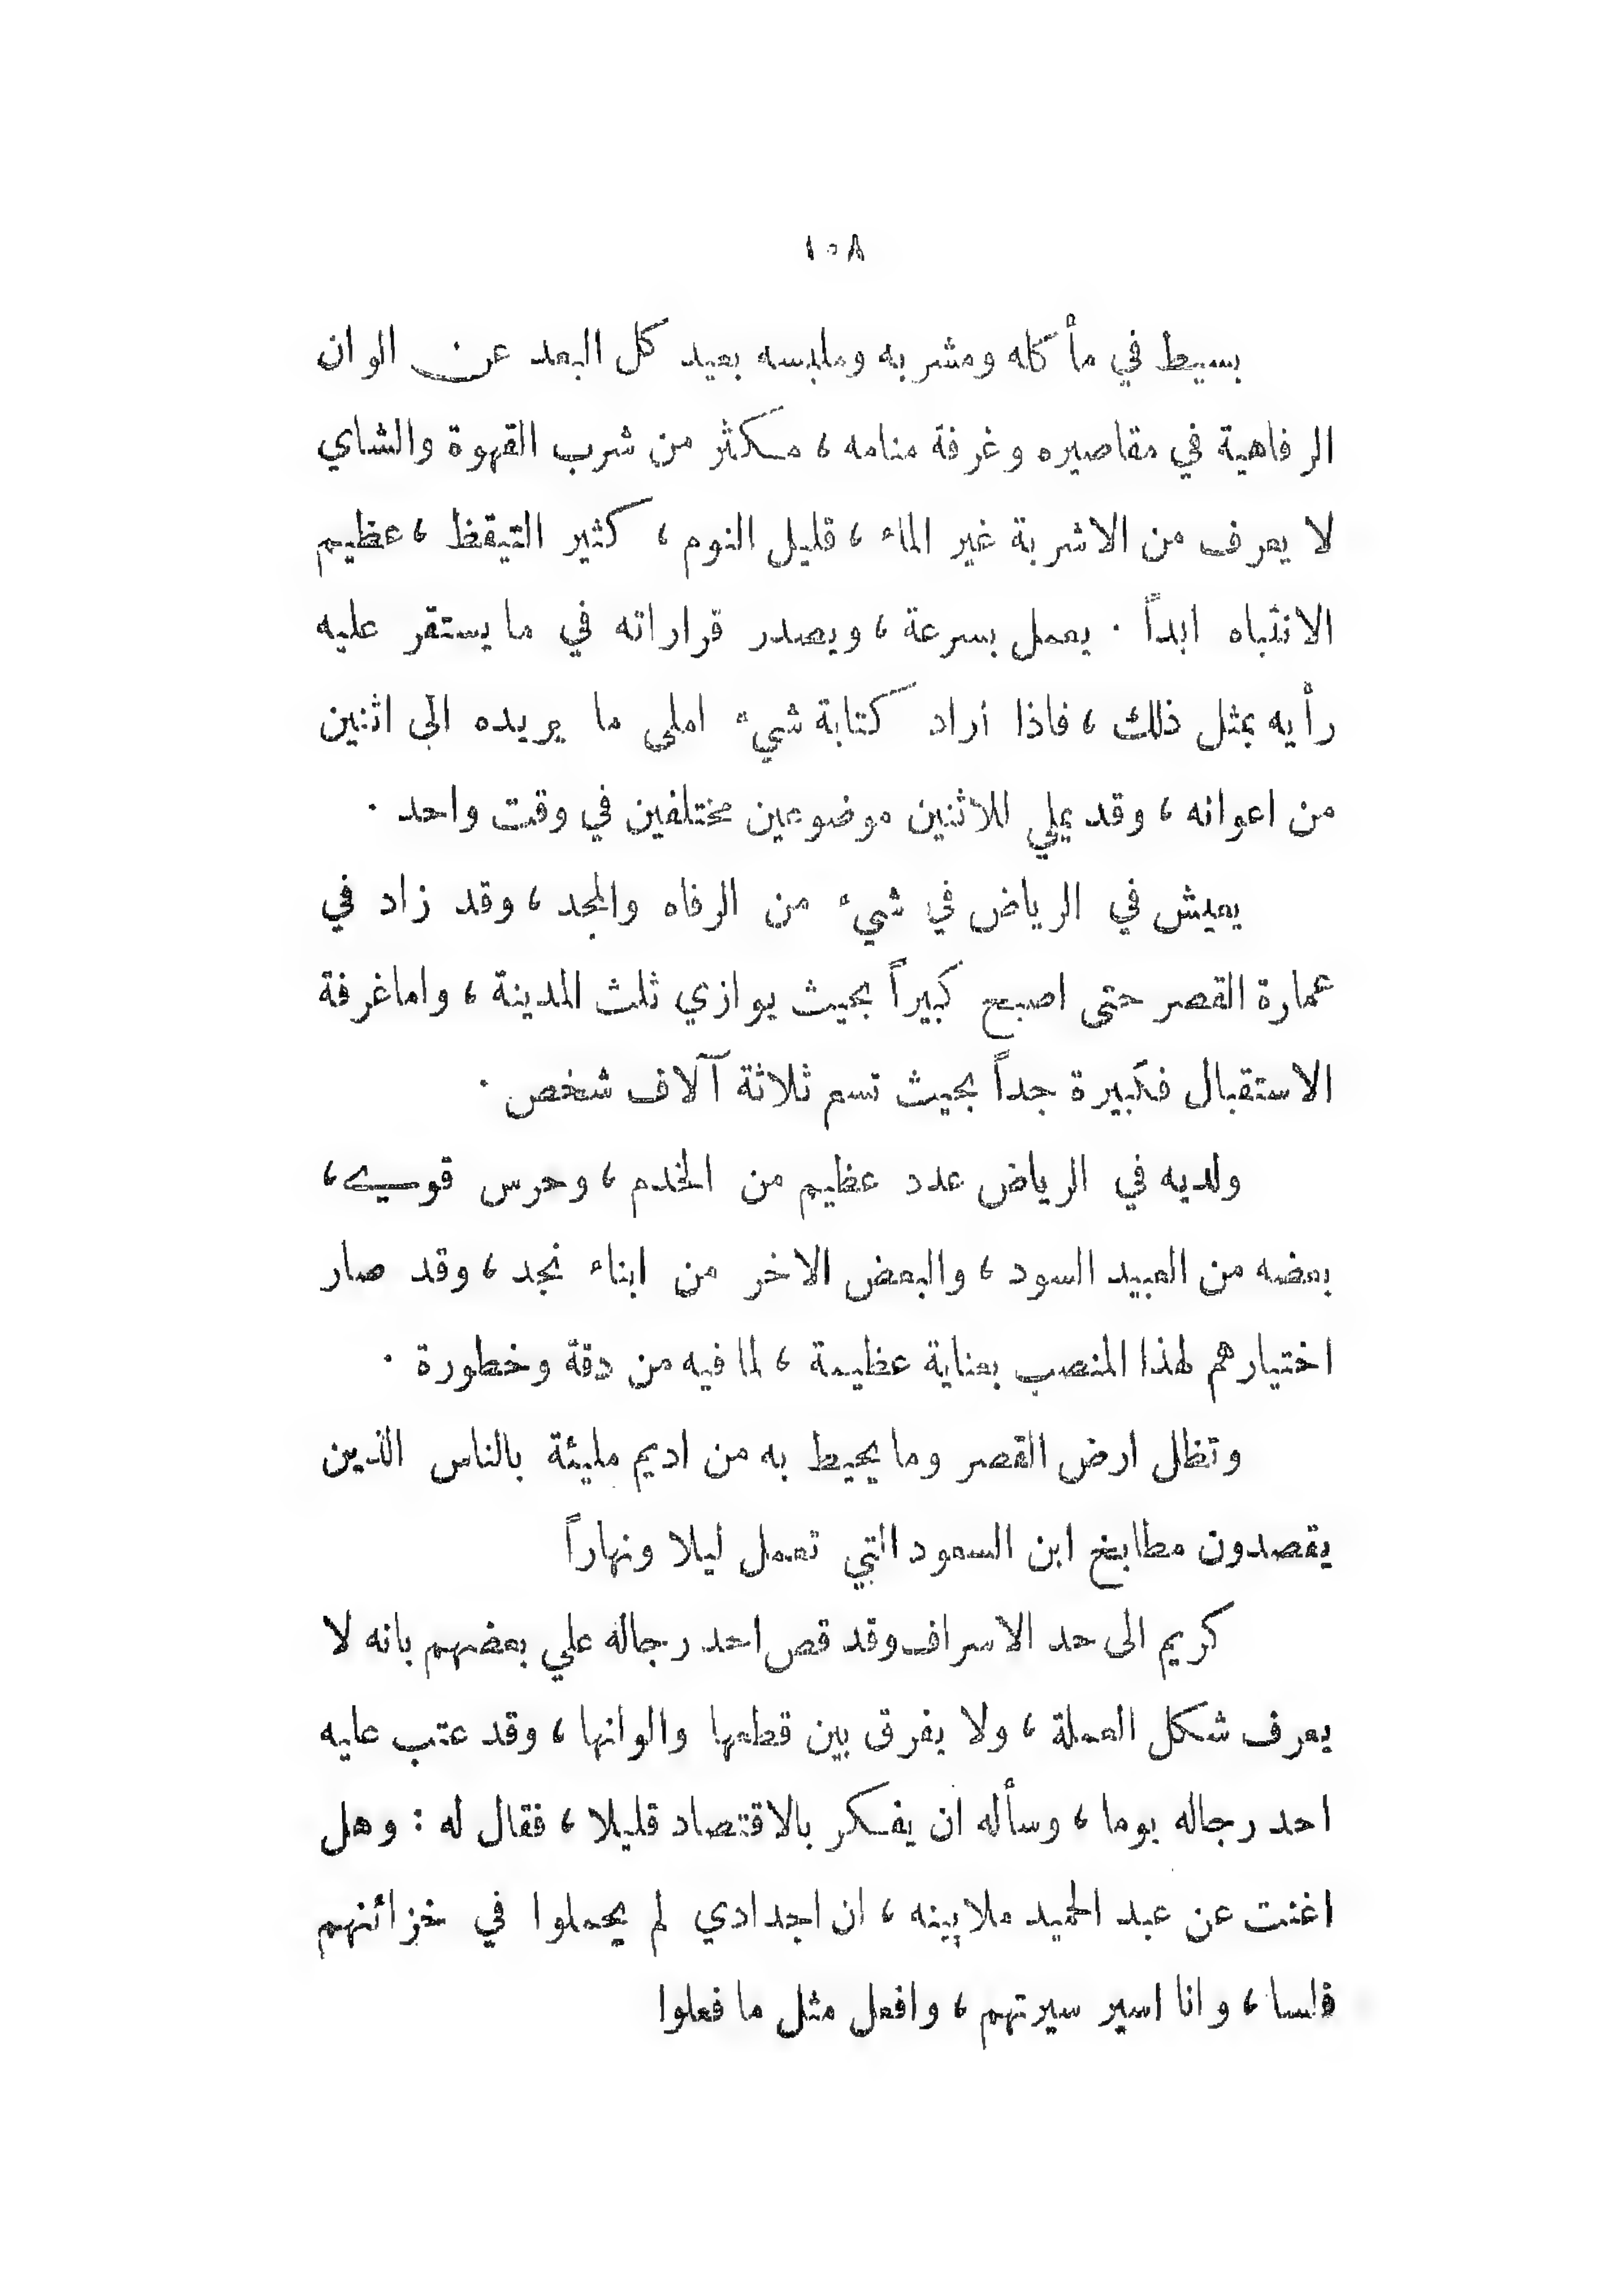 ١٠٨
بسيط في مأكله ومشربه وملبسه بعيد كل البعد عن الوان
الرفاهية في مقاصيره وغرفة منامه ، مكثر من شرب القهوة والشاي
لا يعرف من الاشربة غير الماء ، قليل النوم ، كثير التيقظ ، عظيم
الانتباه ابداً . يعمل بسرعة ، ويصدر قراراته في ما يستقر عليه
رأيه بمثل ذلك ، فاذا أراد كتابة شيء املى ما يريده الى اثنين
من اعوانه ، وقد يملي للاثنين موضوعين مختلفين في وقت واحد .
يعيش في الرياض في شيء من الرفاه والمجد ، وقد زاد في
عمارة القصر حتى اصبح كبيراً بحيث يوازي ثلث المدينة ، واما غرفة
الاستقبال فكبيرة جداً بحيث تسع ثلاثة آلاف شخص .
ولديه في الرياض عدد عظيم من الخدم ، وحرس قوي ،
بعضه من العبيد السود ، والبعض الاخر من ابناء نجد ، وقد صار
اختيارهم لهذا المنصب بعناية عظيمة ، لما فيه من دقة وخطورة .
وتظل ارض القصر وما يحيط به من اديم مليئة بالناس الذين
يقصدون مطابخ ابن السعود التي تعمل ليلا ونهاراً
كريم الى حد الاسراف وقد قص احد رجاله علي بعضهم بانه لا
يعرف شكل العملة ، ولا يفرق بين قطعها والوانها ، وقد عتب عليه
احد رجاله يوما ، وسأله ان يفكر بالاقتصاد قليلا ، فقال له : وهل
اغنت عن عبد الحميد ملايينه ، ان اجدادي لم يحملوا في خزائنهم
فلسا ، وانا اسير سيرتهم ، وافعل مثل ما فعلوا